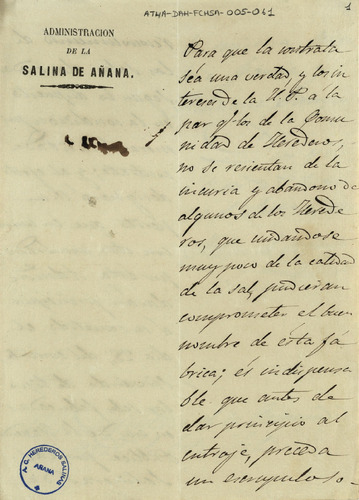 ATHA-DAH-FCHSA-005-061
1
ADMINISTRACION
DE LA
SALINA DE AÑANA.
Para que la contrata
sea una verdad, y los in
tereses de la H. P. a la
par q.e los de la Comu
nidad de Herederos,
no se resientan de la
incuria y abandono de
algunos de los Herede
ros, que cuidandose
muy poco de la calidad
de la sal, pudieran
comprometer el buen
nombre de esta fá
brica; és indispensa
ble que antes de
dar principio al
entraje, preceda
un escrupuloso
A. C. HEREDEROS SALINAS
AÑANA